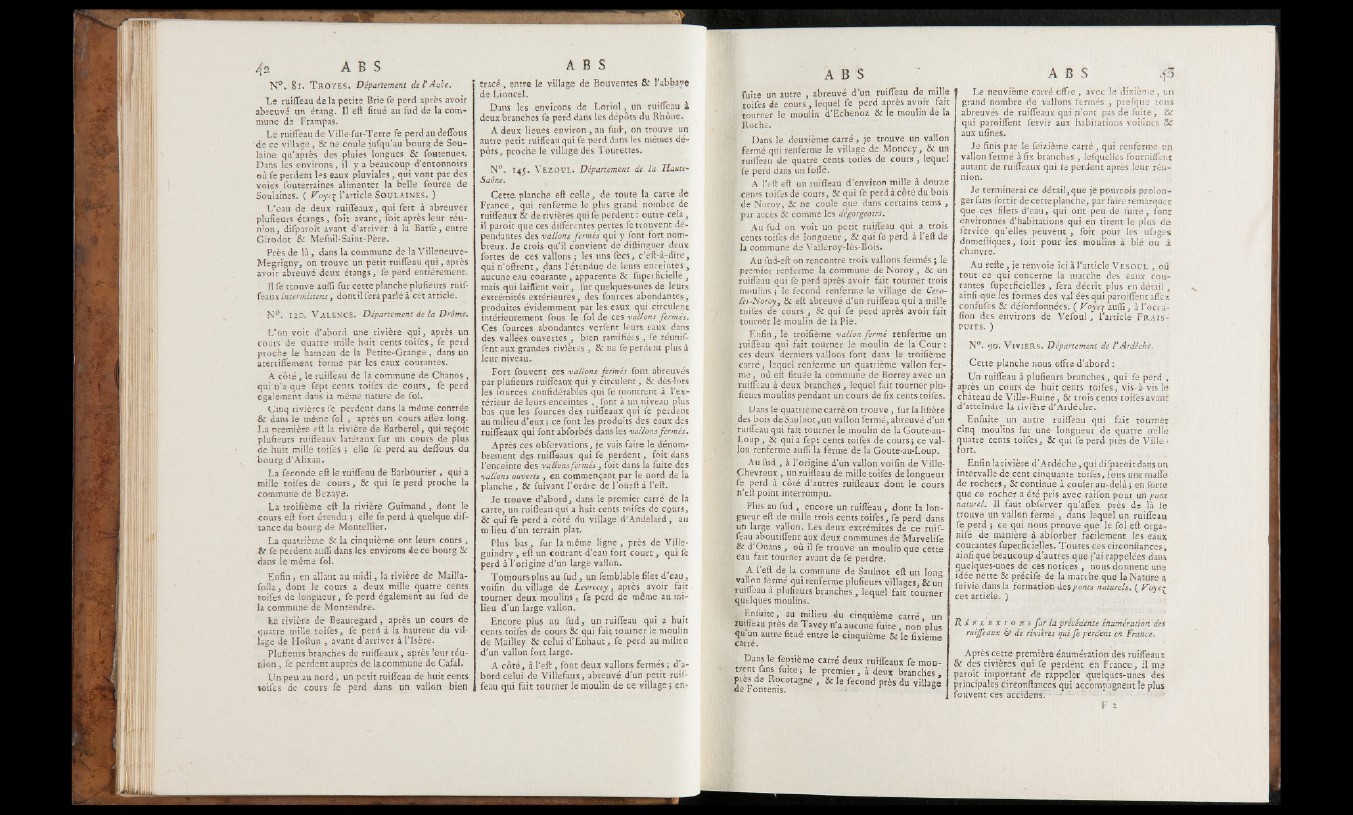 42 A B S
N°. 81. TROYES. Département de l'Aube.
Le ruiſſeau de la petite Brie ſe perd après avoir
abreuvé un étang. Il eſt ſitué au ſud de la com-
mune de Frampas.
Le ruiſſeau de Ville-ſur-Terre ſe perd au deſſous
de ce village, & ne coule juſqu'au bourg de Sou-
laine qu'après des pluies longues & ſoutenues.
Dans les environs, il y a beaucoup d'entonnoirs
où ſe perdent les eaux pluviales, qui vont par des
voies ſouterraines alimenter la belle ſource de
Soulaines. ( Voyez l'article SOULAINES. )
L'eau de deux ruiſſeaux, qui ſert à abreuver
pluſieurs étangs, ſoit avant, ſoit après leur réu-
nion, diſparoît avant d'arriver à la Barſe, entre
Girodot & Meſnil-Saint-Père.
Près de là, dans la commune de la Villeneuve-
Megrigny, on trouve un petit ruiſſeau qui, après
avoir abreuvé deux étangs, ſe perd entiérement.
Il ſe trouve auſſi ſur cette planche pluſieurs ruiſ-
ſeaux intermittens, dont il ſera parlé à cet article.
N°. 120. VALENCE. Département de la Drôme.
L'on voit d'abord une rivière qui, après un
cours de quatre mille huit cents toiſes, ſe perd
proche le hameau de la Petite-Grange, dans un
aterriſſement formé par les eaux courantes.
A côté, le ruiſſeau de la commune de Chanos,
qui n'a que ſept cents toiſes de cours, ſe perd
également dans la même nature de ſol.
Cinq rivières ſe perdent dans la même contrée
& dans le même ſol, après un cours aſſez long.
La première eſt la rivière de Barberel, qui reçoit
pluſieurs ruiſſeaux latéraux ſur un cours de plus
de huit mille toiſes; elle ſe perd au deſſous du
bourg d'Alixan.
La ſeconde eſt le ruiſſeau de Barbourier, qui a
mille toiſes de cours, & qui ſe perd proche la
commune de Bezaye.
La troiſième eſt la rivière Guimand, dont le
cours eſt fort étendu; elle ſe perd à quelque diſ-
tance du bourg de Montellier.
La quatrième & la cinquième ont leurs cours,
& ſe perdent auſſi dans les environs de ce bourg &
dans le même ſol.
Enfin, en allant au midi, la rivière de Mailla-
ſolla, dont le cours a deux mille quatre cents
toiſes de longueur, ſe perd également au ſud de
la commune de Montendre.
La rivière de Beauregard, après un cours de
quatre mille toiſes, ſe perd à la hauteur du vil-
lage de Hoſtun, avant d'arriver à l'Isère.
Pluſieurs branches de ruiſſeaux, après leur réu-
nion, ſe perdent auprès de la commune de Caſal.
Un peu au nord, un petit ruiſſeau de huit cents
toiſes de cours ſe perd dans un vallon bien
A B S
tracé, entre le village de Bouventes & l'abbaye
de Lioncel.
Dans les environs de Loriol, un ruiſſeau à
deux branches ſe perd dans les dépôts du Rhône.
A deux lieues environ, au ſud, on trouve un
autre petit ruiſſeau qui ſe perd dans les mêmes dé-
pôts, proche le village des Tourettes.
N°. 145. VEZOUL. Département de la Haute-
Saône.
Cette planche eſt celle, de toute la carte de
France, qui renferme le plus grand nombre de
ruiſſeaux & de rivières qui ſe perdent: outre cela,
il paroît que ces différentes pertes ſe trouvent dé-
pendantes des vallons fermés qui y ſont fort nom-
breux. Je crois qu'il convient de diſtinguer deux
ſortes de ces vallons; les uns ſecs, c'eſt-à-dire,
qui n'offrent, dans l'étendue de leurs enceintes,
aucune eau courante, apparente & ſuperficielle,
mais qui laiſſent voir, ſur quelques-unes de leurs
extrémités extérieures, des ſources abondantes,
produites évidemment par les eaux qui circulent
intérieurement ſous le ſol de ces vallons fermés.
Ces ſources abondantes verſent leurs eaux dans
des vallées ouvertes, bien ramifiées, ſe réuniſ-
ſent aux grandes rivières, & ne ſe perdent plus à
leur niveau.
Fort ſouvent ces vallons fermés ſont abreuvés
par pluſieurs ruiſſeaux qui y circulent, & dès-lors
les ſources conſidérables qui ſe montrent à l'ex-
térieur de leurs enceintes, ſont à un niveau plus
bas que les ſources des ruiſſeaux qui ſe perdent
au milieu d'eux; ce ſont les produits des eaux des
ruiſſeaux qui ſont abſorbés dans les vallons fermés.
Après ces obſervations, je vais faire le dénom-
brement des ruiſſeaux qui ſe perdent, ſoit dans
l'enceinte des vallons fermés, ſoit dans la ſuite des
vallons ouverts, en commençant par le nord de la
planche, & ſuivant l'ordre de l'oueſt à l'eſt.
Je trouve d'abord, dans le premier carré de la
carte, un ruiſſeau qui a huit cents toiſes de cours,
& qui ſe perd à côté du village d'Andelard, au
milieu d'un terrain plat.
Plus bas, ſur la même ligne, près de Ville-
guindry, eſt un courant d'eau fort court, qui ſe
perd à l'origine d'un large vallon.
Toujours plus au ſud, un ſemblable filet d'eau,
voiſin du village de Levrecey, après avoir fait
tourner deux moulins, ſe perd de même au mi-
lieu d'un large vallon.
Encore plus au ſud, un ruiſſeau qui a huit
cents toiſes de cours & qui fait tourner le moulin
de Mailley & celui d'Enhaut, ſe perd au milieu
d'un vallon fort large.
A côté, à l'eſt, ſont deux vallons fermés; d'a-
bord celui de Villefaux, abreuvé d'un petit ruiſ-
ſeau qui fait tourner le moulin de ce village; en-
A B S
ſuite un autre, abreuvé d'un ruiſſeau de mille
toiſes de cours, lequel ſe perd après avoir fait
tourner le moulin d'Echenoz & le moulin de la
Roche.
Dans le deuxième carré, je trouve un vallon
fermé qui renferme le village de Moncey, & un
ruiſſeau de quatre cents toiſes de cours, lequel
ſe perd dans un foſſé.
A l'eſt eſt un ruiſſeau d'environ mille à douze
cents toiſes de cours, & qui ſe perd à côté du bois
de Noroy, & ne coule que dans certains tems,
par accès & comme les dégorgeoirs.
Au ſud on voit un petit ruiſſeau qui a trois
cents toiſes de longueur, & qui ſe perd à l'eſt de
la commune de Valleroy-lès-Bois.
Au ſud-eſt on rencontre trois vallons fermés; le
premier renferme la commune de Noroy, & un
ruiſſeau qui ſe perd après avoir fait tourner trois
moulins; le ſecond renferme le village de Cero-
les-Noroy, & eſt abreuvé d'un ruiſſeau qui a mille
toiſes de cours, & qui ſe perd après avoir fait
tourner le moulin de la Pie.
Enfin, le troiſième vallon fermé renferme un
ruiſſeau qui fait tourner le moulin de la Cour:
ces deux derniers vallons ſont dans le troiſième
carré, lequel renferme un quatrième vallon fer-
mé, où eſt ſituée la commune de Borrey avec un
ruiſſeau à deux branches, lequel fait tourner plu-
ſieurs moulins pendant un cours de ſix cents toiſes.
Dans le quatrième carré on trouve, ſur la liſière
des bois de Saulnot, un vallon fermé, abreuvé d'un
ruiſſeau qui fait tourner le moulin de la Goute-au-
Loup, & qui a ſept cents toiſes de cours; ce val-
lon renferme auſſi la ferme de la Goute-au-Loup.
Au ſud, à l'origine d'un vallon voiſin de Ville-
Chevreux, un ruiſſeau de mille toiſes de longueur
ſe perd à côté d'autres ruiſſeaux dont le cours
n'eſt point interrompu.
Plus au ſud, encore un ruiſſeau, dont la lon-
gueur eſt de mille trois cents toiſes, ſe perd dans
un large vallon. Les deux extrémités de ce ruiſ-
ſeau aboutiſſent aux deux communes de Marveliſe
& d'Onans, où il ſe trouve un moulin que cette
eau fait tourner avant de ſe perdre.
A l'eſt de la commune de Saulnot eſt un long
vallon fermé qui renferme pluſieurs villages, & un
ruiſſeau à pluſieurs branches, lequel fait tourner
quelques moulins.
Enſuite, au milieu du cinquième carré, un
ruiſſeau près de Tavey n'a aucune ſuite, non plus
qu'un autre ſitué entre le cinquième & le ſixième
carré.
Dans le ſeptième carré deux ruiſſeaux ſe mon-
trent ſans ſuite; le premier, à deux branches,
près de Rocotagne, & le ſecond près du village
de Fontenis.
A B S 43
Le neuvième carré offre, avec le dixième, un
grand nombre de vallons fermés, preſque tous
abreuvés de ruiſſeaux qui n'ont pas de ſuite, &
qui paroiſſent ſervir aux habitations voiſines &
aux uſines.
Je finis par le ſeizième carré, qui renferme un
vallon fermé à ſix branches, leſquelles fourniſſent
autant de ruiſſeaux qui ſe perdent après leur réu-
nion.
Je terminerai ce détail, que je pourrois prolon-
ger ſans ſortir de cette planche, par faire remarquer
que ces filets d'eau, qui ont peu de ſuite, ſont
environnés d'habitations qui en tirent le plus de
ſervice qu'elles peuvent, ſoit pour les uſages
domeſtiques, ſoit pour les moulins à blé ou à
chanvre.
Au reſte, je renvoie ici à l'article VESOUL, où
tout ce qui concerne la marche des eaux cou-
rantes ſuperficielles, ſera décrit plus en détail,
ainſi que les formes des vallées qui paroiſſent aſſez
confuſes & déſordonnées. ( Voyez auſſi, à l'occa-
ſion des environs de Veſoul, l'article FRAIS-
PUITS. )
N°. 90. VIVIERS. Département de l'Ardèche.
Cette planche nous offre d'abord:
Un ruiſſeau à pluſieurs branches, qui ſe perd,
après un cours de huit cents toiſes, vis-à-vis le
château de Ville-Ruine, & trois cents toiſes avant
d'atteindre la rivière d'Ardèche.
Enſuite un autre ruiſſeau qui fait tourner
cinq moulins ſur une longueur de quatre mille
quatre cents toiſes, & qui ſe perd près de Ville-
fort.
Enfin la rivière d'Ardèche, qui diſparoît dans un
intervalle de cent cinquante toiſes, ſous une maſſe
de rochers, & continue à couler au-delà; en ſorte
que ce rocher a été pris avec raiſon pour un pont
naturel. Il faut obſerver qu'aſſez près de là ſe
trouve un vallon fermé, dans lequel un ruiſſeau
ſe perd; ce qui nous prouve que le ſol eſt orga-
niſé de manière à abſorber facilement les eaux
courantes ſuperficielles. Toutes ces circonſtances,
ainſi que beaucoup d'autres que j'ai rappelées dans
quelques-unes de ces notices, nous donnent une
idée nette & préciſe de la marche que la Nature a
ſuivie dans la formation des ponts naturels. ( Voyez
cet article. )
RÉFLEXIONS ſur la précédente énumération des
ruiſſeaux & de rivières qui ſe perdent en France.
Après cette première énumération des ruiſſeaux
& des rivières qui ſe perdent en France, il me
paroît important de rappeler quelques-unes des
principales circonſtances qui accompagnent le plus
ſouvent ces accidens.
F 2